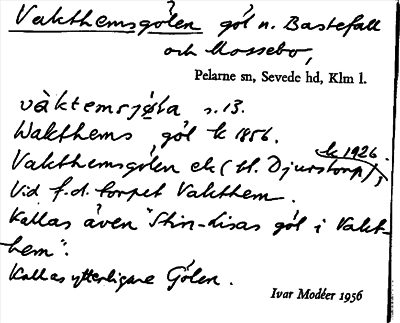 Vakthemsgölen göl n. Bastefall
och Mossebo,
Pelarne sn, Sevede hd, Klm l.
vàktemsjøla s. 13.
Wakthems göl k 1856.
k 1926.
Vakthemsgölen ek (bl. Djurstorp),
Vid f.d. torpet Vakthem.
Kallas även "Skin-Lisas göl i Vakt-
hem".
Kallas ytterligare Gölen.
Ivar Modéer 1956